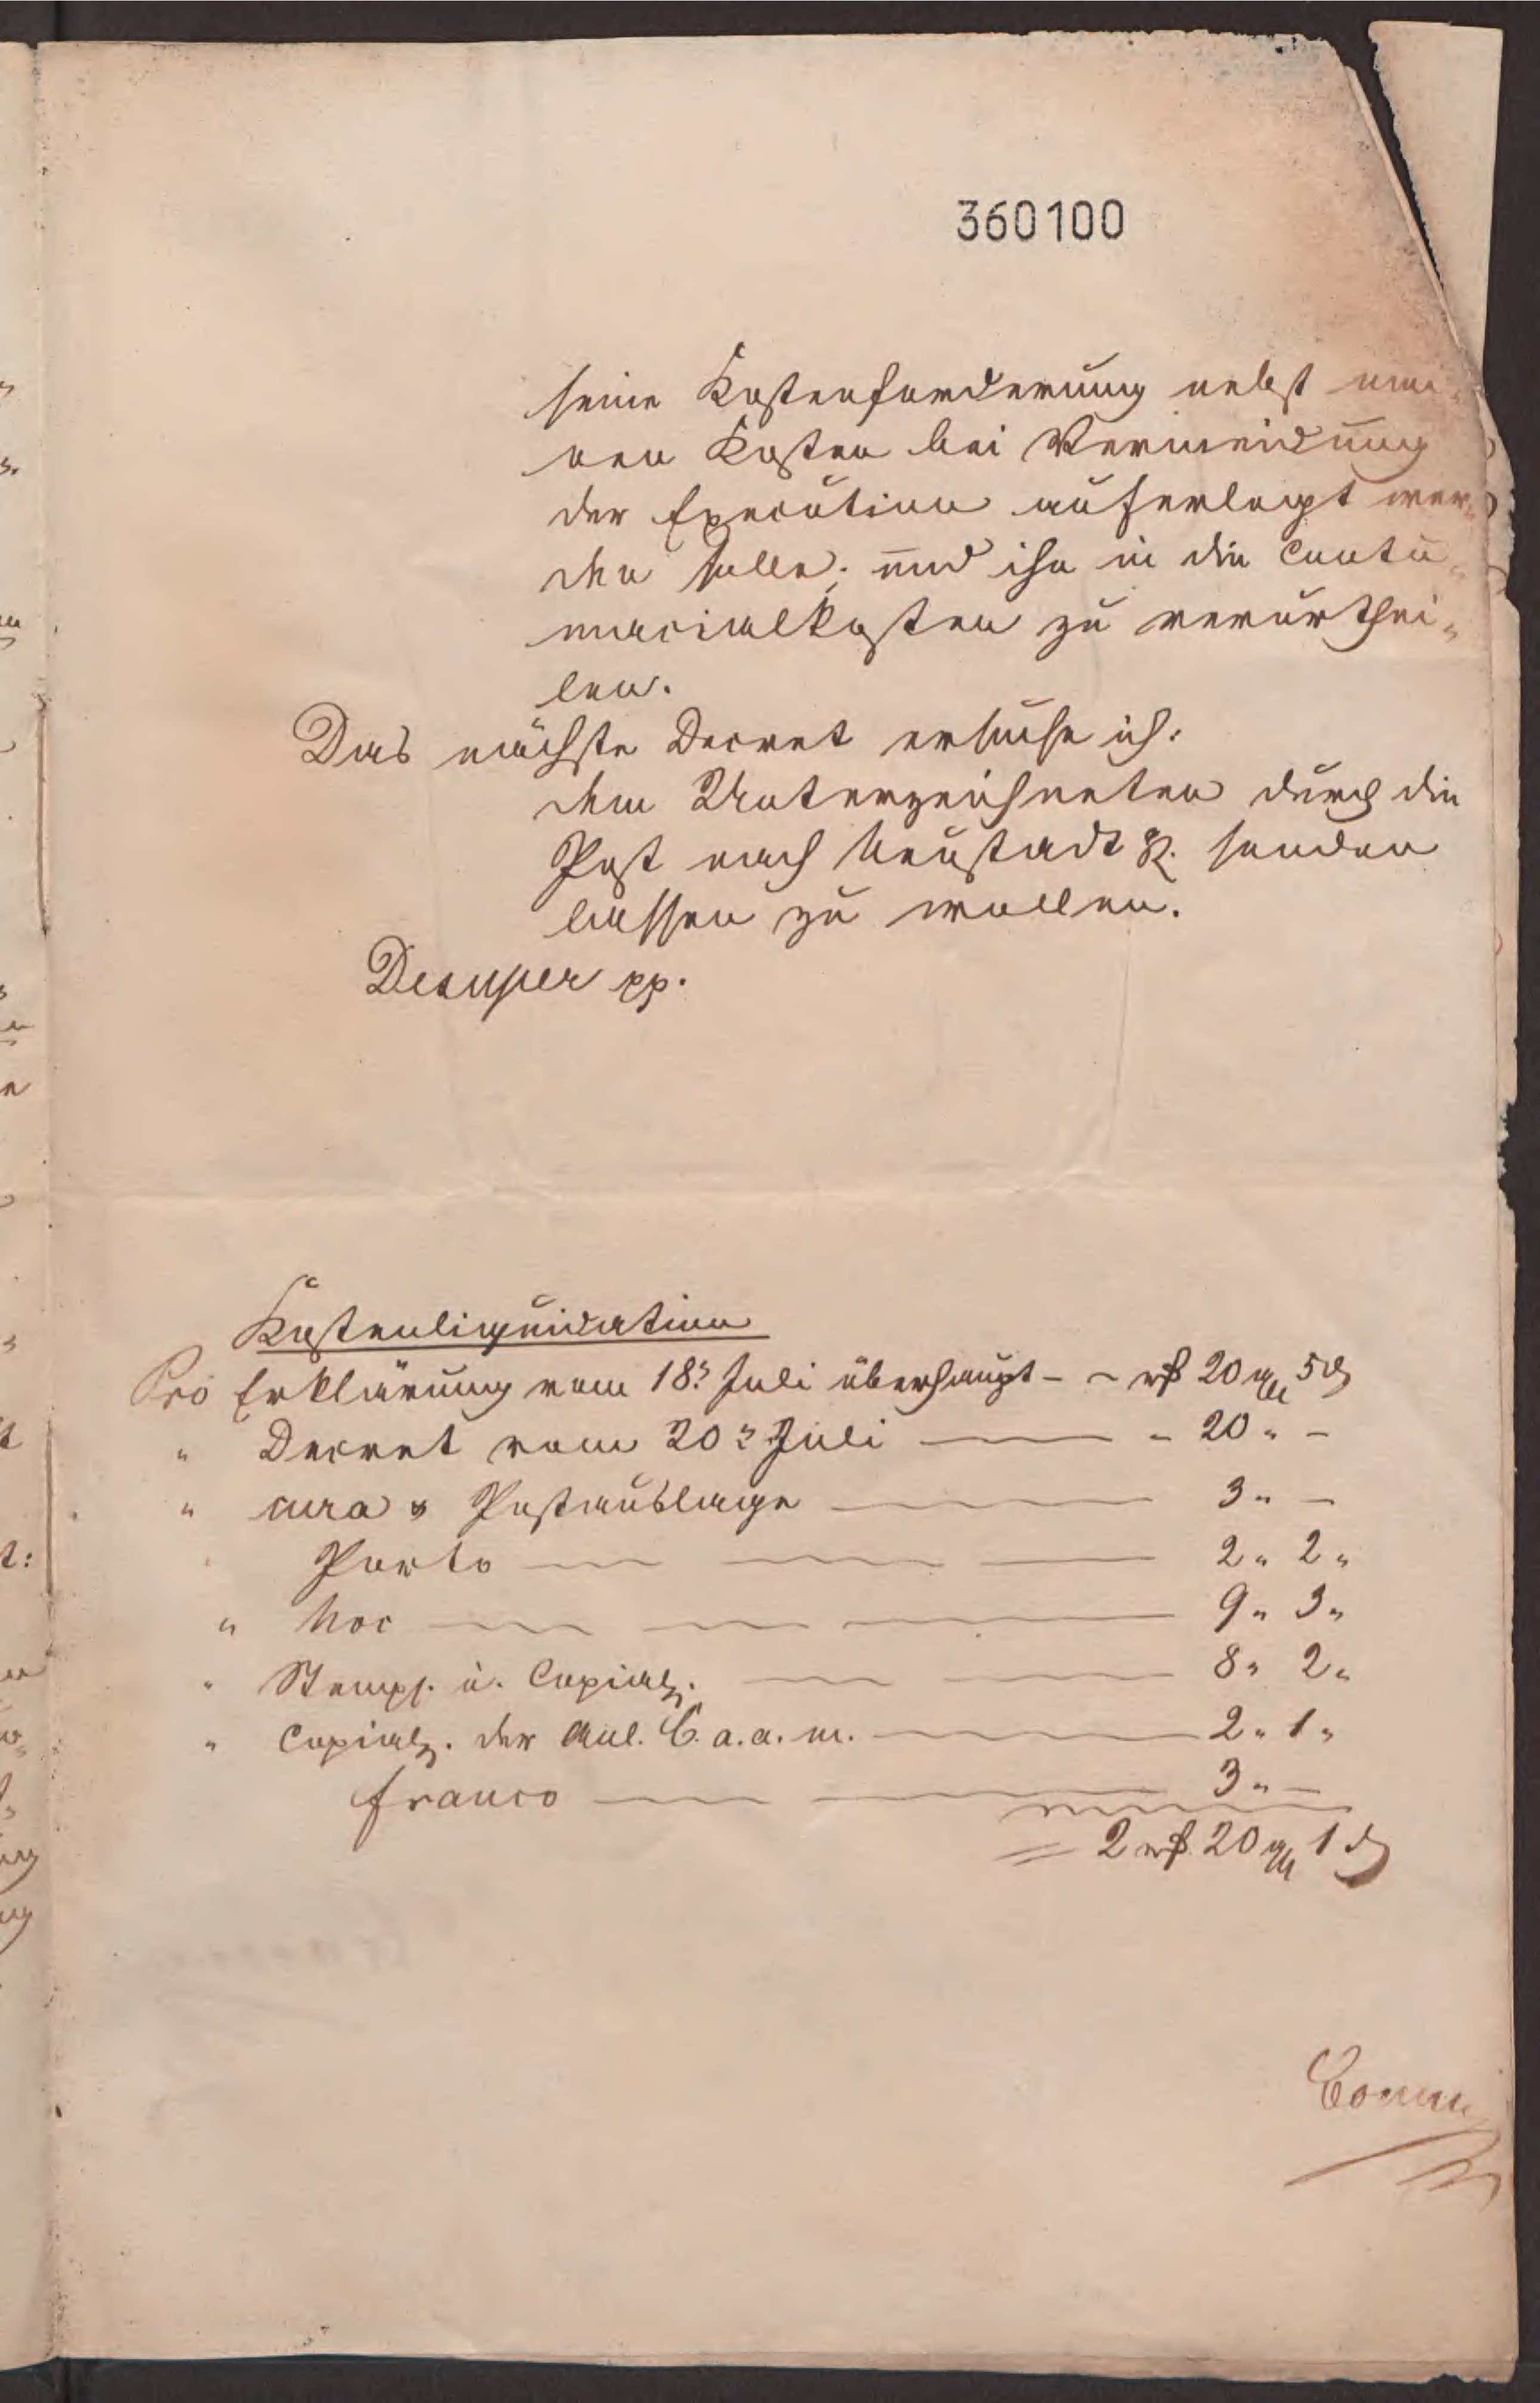 360100
seine Kostenforderung nebst mei-
nen Kosten bei Vermeidung
der Execution auferlegt wer-
den solle; und ihn in die Contu-
macialkosten zu verurthei-
len.
Das nächste Decret ersuche ich:
dem Unterzeichneten durch die
Post nach Neustadt R. senden
lassen zu wollen.
Desuper pp.
Kostenliquidation
Pro Erklärung vom 18t Juli überhaupt - - rß 20 gg 5 d
" Decret vom 20t Juli - 20 " -
" cura & Postauslage 3 " -
Porto 2 " 2 "
" hoc 9 " 3 "
" Stempf. u. Copialg. 8 " 2 "
" Copialg. der Anl. C. a. a. m. 2 " 1 "
franco 3 " -
= 2 rß 20 gg 1 d